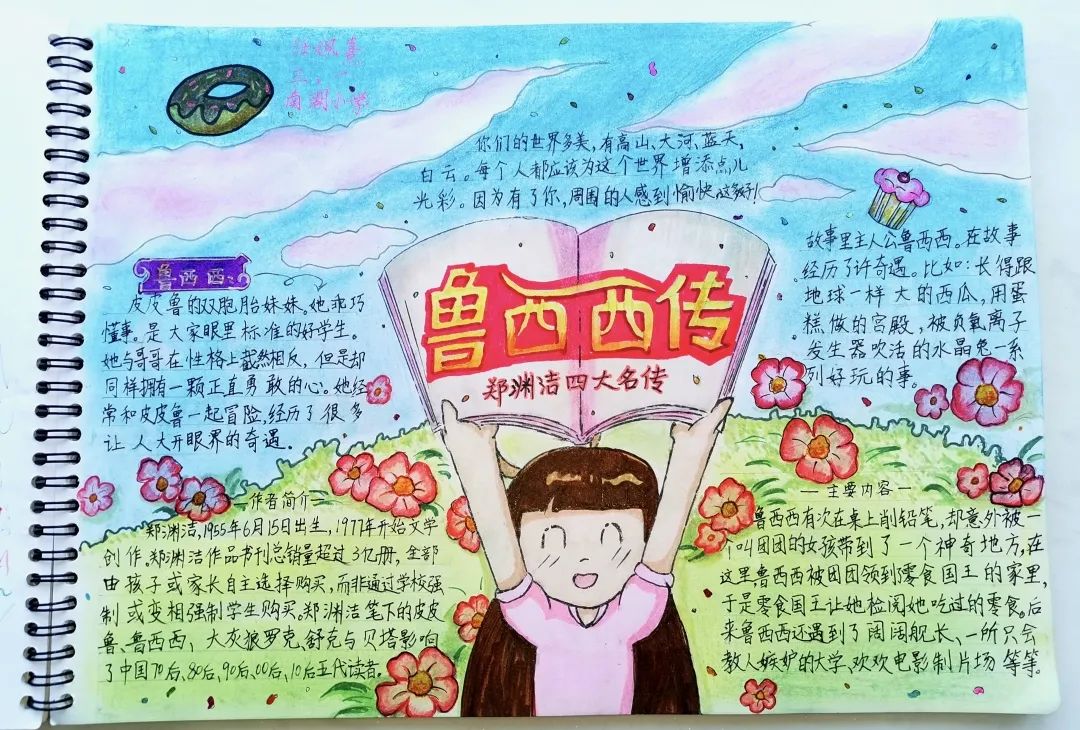 三、一
南湖小学
你们的世界多美,有高山、大河、蓝天,
白云。每个人都应该为这个世界增添点儿
光彩。因为有了你,周围的人感到愉快,这多好!
鲁西西传
郑渊洁四大名传
鲁西西:
皮皮鲁的双胞胎妹妹。她乖巧
懂事。是大家眼里标准的好学生。
她与哥哥在性格上截然相反,但是却
同样拥有一颗正直勇敢的心。她经
常和皮皮鲁一起冒险,经历了很多
让人大开眼界的奇遇。
故事里主人公鲁西西。在故事
经历了许奇遇。比如:长得跟
地球一样大的西瓜,用蛋
糕做的宫殿,被负氧离子
发生器吹活的水晶兔一系
列好玩的事。
—作者简介—
郑渊洁,1955年6月15日出生,1977年开始文学
创作,郑渊洁作品书刊总销量超过3亿册,全部
由孩子或家长自主选择购买,而非通过学校强
制或变相强制学生购买。郑渊洁笔下的皮皮
鲁、鲁西西,大灰狼罗克、舒克与贝塔影响
了中国70后、80后、90后、00后、10后五代读者。
—主要内容—
鲁西西有次在桌上削铅笔,却意外被一
个叫团团的女孩带到了一个神奇地方,在
这里鲁西西被团团领到零食国王的家里,
于是零食国王让她检阅她吃过的零食。后
来鲁西西还遇到了阔阔舰长、一所只会
教人嫉妒的大学、欢欢电影制片场等等。